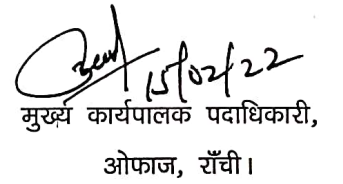 15/02/22
मुख्य कार्यपालक पदाधिकारी,
ओफाज, राँची।